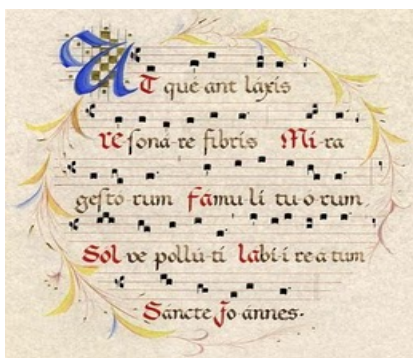 UT que ant láxis
re soná-re fibris Mi-ra
gestó rum fámu-lí tu-ó-rum
Sol ve pollú-ti lábi-i re a tum
Sáncte Jo ánnes.